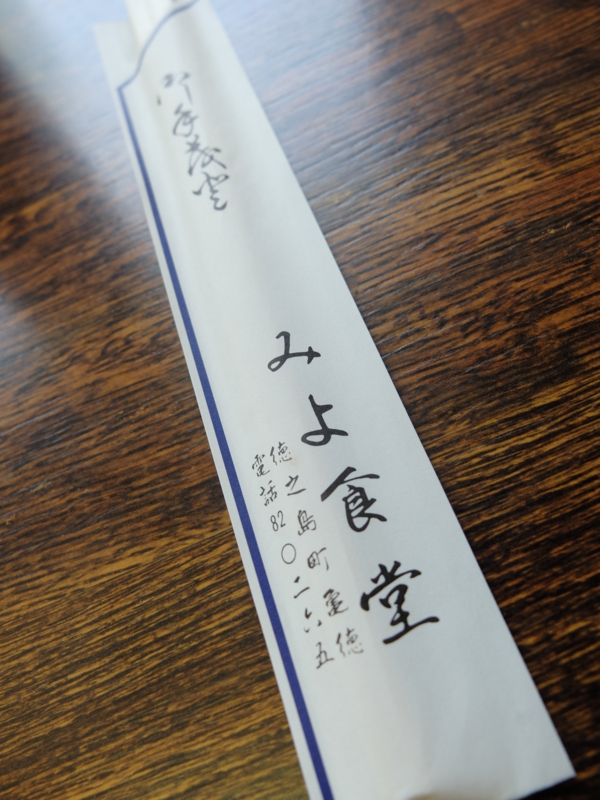 御手茂登
みよ食堂
徳之島町亀徳
電話82〇二六五